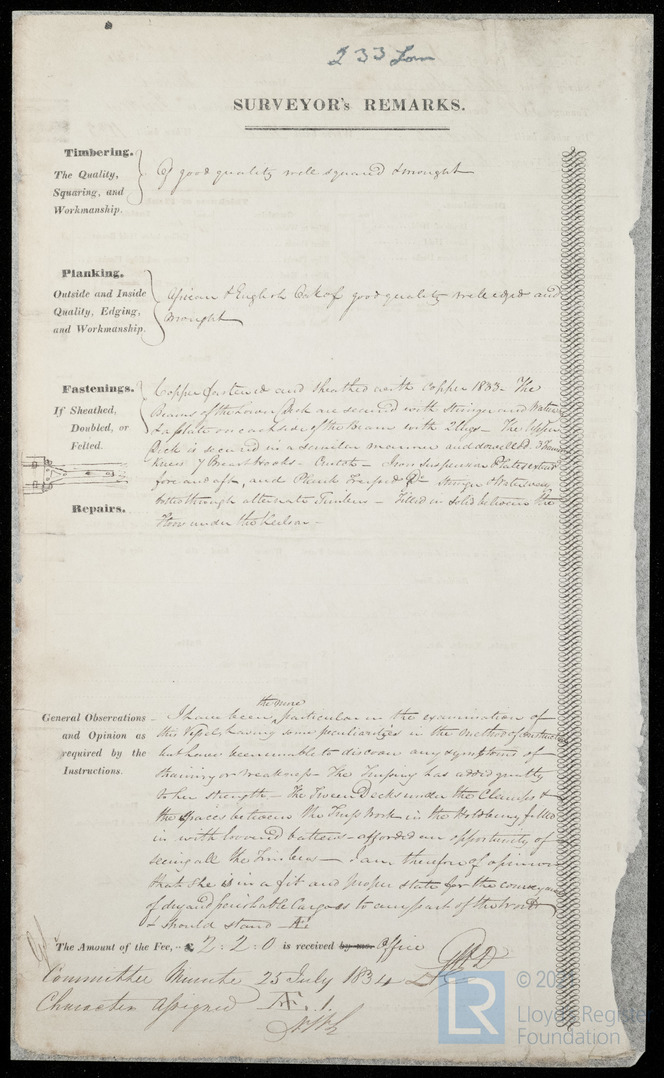 233 Lon
SURVEYOR's REMARKS.
Timbering.
The Quality, Squaring, and Workmanship.
Of good quality well squared & wrought
Planking.
Outside and Inside Quality, Edging, and Workmanship.
African & English Oak of good quality well edged and
wrought
Fastenings.
If Sheathed, Doubled, or Felted.
Copper fastened and sheathed with Copper 1833 - The
Beams of the Lower Deck are secured with Stringer and Water
& a plate on each side of the Beams with 2 Legs - The Upper
Deck is secured in a similar manner and dowelled. 3
Knees 7 Breasthooks - Crutch - Iron Suspension Plates
fore and aft, and Plank Stringer & Waterways
bolts through alternate Timbers - Filled in solid between the
Floors under the Keelson -
Repairs.
General Observations and Opinion as required by the Instructions.
the more
I have been particular in the examination of
this Vessel having some peculiarities in the method of construction
but have been unable to discover any symptoms of
straining or weakness - The Trussing has added greatly
to her strength - The Tween Decks under the Clamps &
the spaces between the Truss Work in the Hold being filled
in with louvered battens - afforded an opportunity of
seeing all the Timbers - I am therefore of opinion
that she is in a fit and proper state for the conveyance
of dry and perishable Cargoes to any part of the World
& should stand Æ1
The Amount of the Fee, - £ 2 : 2 : 0 is received by me. Office
Committee Minute 25 July 1834
Character assigned Æ. 1.
LR
© 20
Lloyd's Register
Foundation